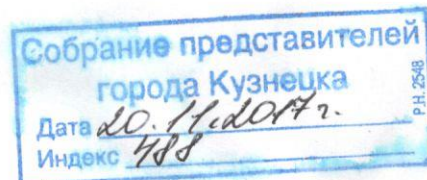 Собрание представителей
города Кузнецка
Дата 20.11.2017г.
Индекс 488
Р.Н. 2548